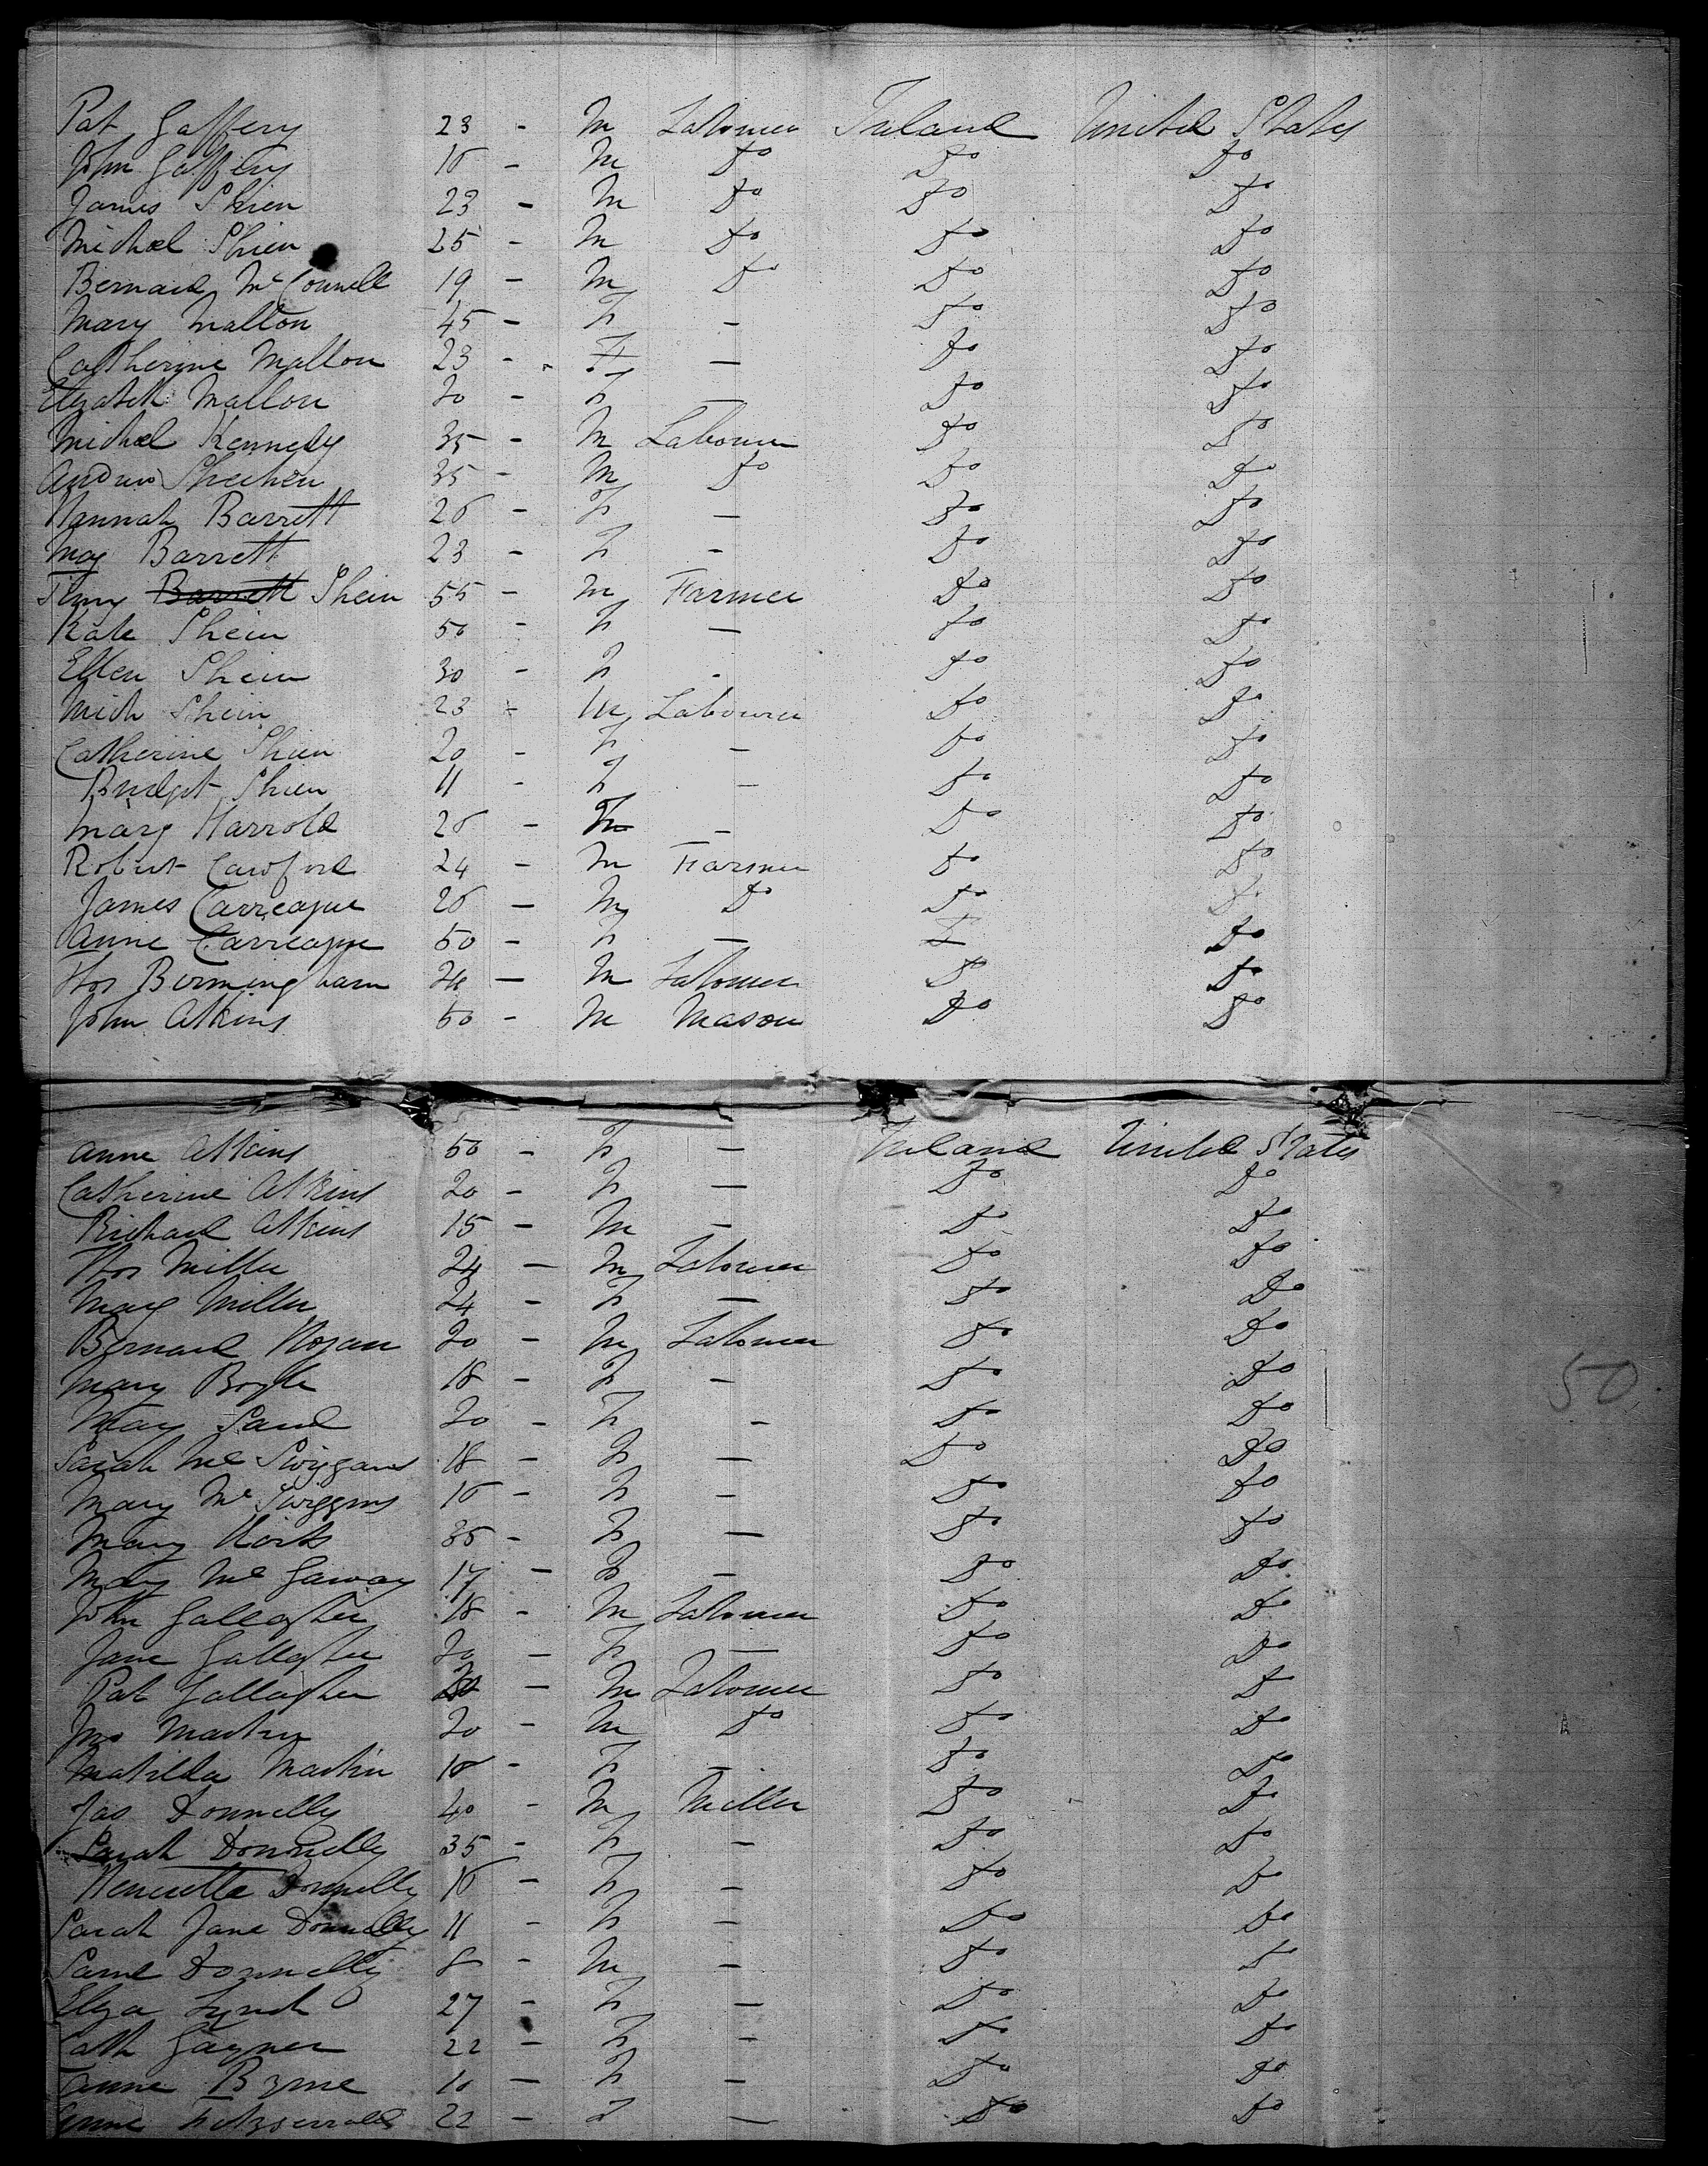 Pat Gaffery 23 - M Labourer Ireland United States
John Gaffery 16 - M Do Do Do
James Shien 23 - M Do Do Do
Michael Shien 25 - M Do Do Do
Bernard McConnell 19 - M Do Do Do
Mary Mallon 45 - F - Do Do
Catherine Mallon 23 - F - Do Do
Elizabeth Mallon 20 - F - Do Do
Michael Kennedy 35 - M Labourer Do Do
Andrew Sheehen 35 - M Do Do Do
Hannah Barrett 26 - F - Do Do
May Barrett 23 - F - Do Do
Barrett Shein 55 - M Farmer Do Do
Kate Shein 50 - F - Do Do
Ellen Shein 30 - F - Do Do
Mich Shein 23 - M Labourer Do Do
Catherine Shien 20 - F - Do Do
Bridget Shien 11 - F - Do Do
Mary Harrold 26 - - Do Do
Robert Cawford 24 - M Farmer Do Do
James Carreague 26 - M Do Do Do
Anne Carreague 50 - F - Do Do
Thos Bermingham 24 - M Labourer Do Do
John Atkins 50 - M Mason Do Do
Anne Atkins 50 - F - Ireland United States
Catherine Atkins 20 - F - Do Do
Richard Atkins 15 - M - Do Do
Thos Miller 24 - M Labourer Do Do
Mary Miller 24 - F - Do Do
Bernard Hogan 20 - M Labourer Do Do
Mary Boyle 18 - F - Do Do
50
May 20 - F - Do Do
Sarah Mc Swiggans 18 - F - Do Do
Mary Mc Swiggins 16 - F - Do Do
Mary 35 - F - Do Do
Mary Mc Garvay 17 - F - Do Do
John Gallagher 18 - M Labourer Do Do
Jane Gallagher 20 - F - Do Do
Pat Gallagher - M Labourer Do Do
Jno Martin 20 - M Do Do Do
Matilda Martin 18 - F - Do Do
Jas Donnelly 40 - M Miller Do Do
Sarah Donnelly 35 - F - Do Do
Henrietta Donnelly 16 - F - Do Do
Sarah Jane Donnelly 11 - F - Do Do
Saml Donnelly 8 - M - Do Do
Eliza Lynch 27 - F - Do Do
Cath Gayner 22 - F - Do Do
Anne Byrne 10 - F - Do Do
Anne Fitzgerrald 22 - F - Do Do